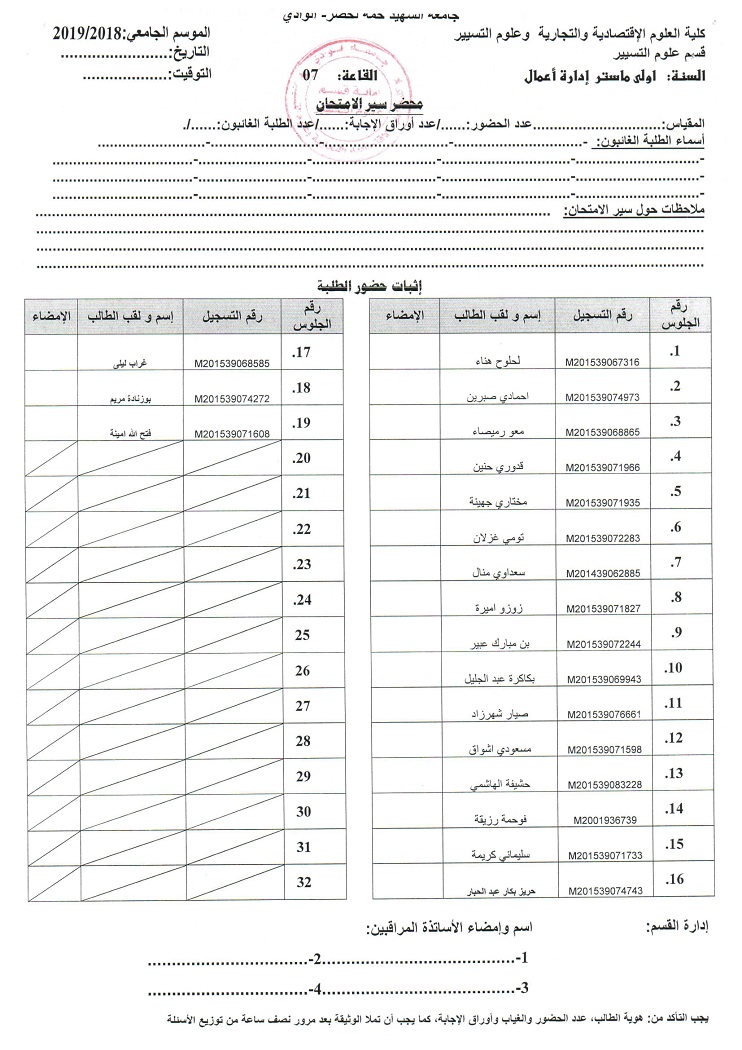 جامعة الشهيد حمه لخضر- الوادي
كلية العلوم الإقتصادية والتجارية وعلوم التسيير
الموسم الجامعي:2019/2018
قسم علوم التسيير
التاريخ:........................
السنة: اولى ماستر إدارة أعمال
القاعة: 07
التوقيت:...................
محضر سير الامتحان
المقياس:................................عدد الحضور:....../عدد أوراق الإجابة:....../عدد الطلبة الغائبون:....../.
أسماء الطلبة الغائبون: -..............................-..............................-..............................-..............................
-..............................-..............................-..............................-..............................-..............................
-..............................-..............................-..............................-..............................-..............................
-..............................-..............................-..............................-..............................-..............................
ملاحظات حول سير الامتحان: ....................................................................................
................................................................................................................
................................................................................................................
................................................................................................................
إثبات حضور الطلبة
رقم الجلوس رقم التسجيل إسم و لقب الطالب الإمضاء
1. M201539067316 لحلوح هناء
2. M201539074973 احمادي صبرين
3. M201539068865 معو رميصاء
4. M201539071966 قدوري حنين
5. M201539071935 مختاري جهينة
6. M201539072283 تومي غزلان
7. M201439062885 سعداوي منال
8. M201539071827 زوزو اميرة
9. M201539072244 بن مبارك عبير
10. M201539069943 بكاكرة عبد الجليل
11. M201539076661 صيار شهرزاد
12. M201539071598 مسعودي اشواق
13. M201539083228 حشيفة الهاشمي
14. M2001936739 فوحمة رزيقة
15. M201539071733 سليماني كريمة
16. M201539074743 حريز بكار عبد الحبار
رقم الجلوس رقم التسجيل إسم و لقب الطالب الإمضاء
17. M201539068585 غراب ليلى
18. M201539074272 بوزنادة مريم
19. M201539071608 فتح الله امينة
20.
21.
22.
23.
24.
25
26
27
28
29
30
31
32
إدارة القسم:
اسم وإمضاء الأساتذة المراقبين:
1-....................................2-....................................
3-....................................4-....................................
يجب التأكد من: هوية الطالب، عدد الحضور والغياب وأوراق الإجابة، كما يجب أن تملا الوثيقة بعد مرور نصف ساعة من توزيع الأسئلة